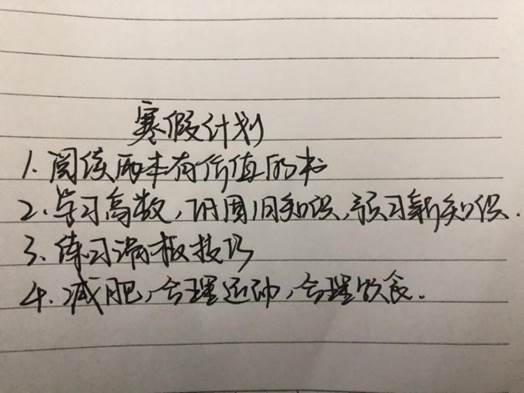 寒假计划
1. 阅读两本有价值的书
2. 学习高数,巩固旧知识,预习新知识.
3. 练习滑板技巧
4. 减肥,合理运动,合理饮食.